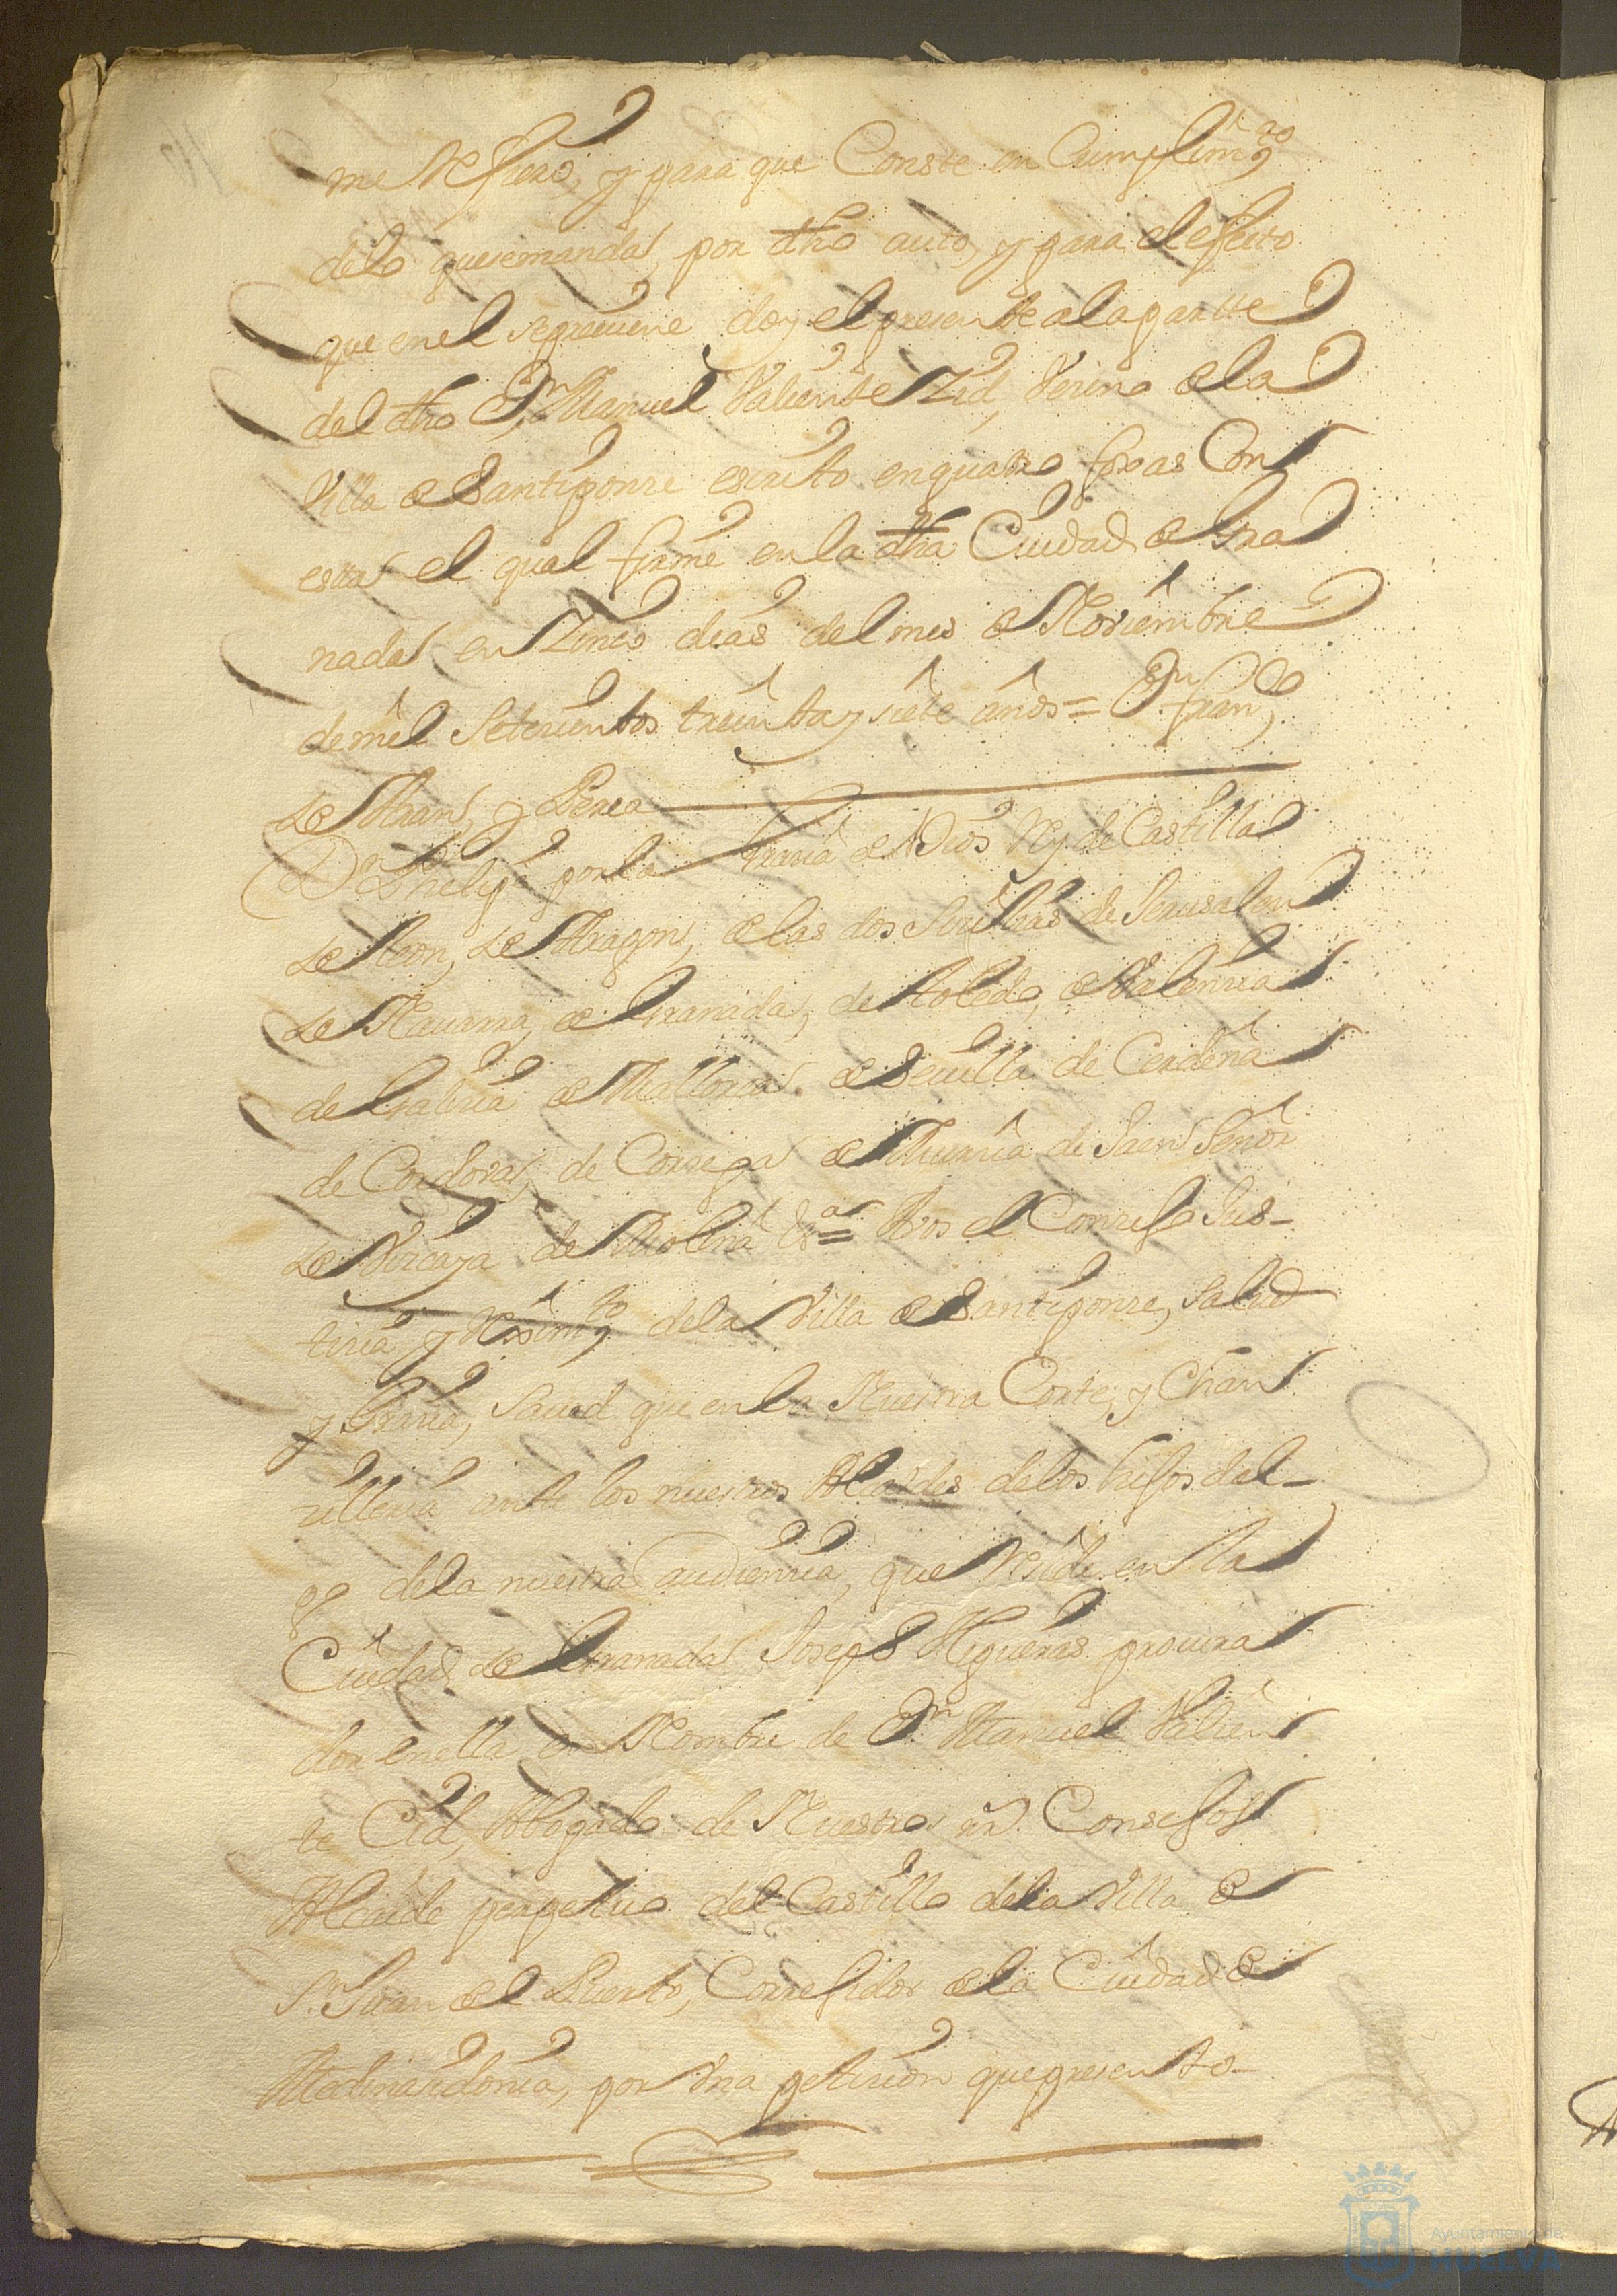 me refiero, y para que Conste en Cumplim.to
delo quesemanda, por dho auto, y para el efecto
que enel sepreuiene doy el presente ala partte
del dho Dn Manuel Valiente Zid, Vezino de la
Villa de Santiponze escrito enquatro foxas Con
esta el qual firmé en la dha Ciudad de Gra
nada en Zinco dias del mes de Noviembre
demil Setecientos treinta y siete años = Dn Fran.co
de Y Perea
Dn Phelipe por la Gracia de Dios Rey de Castilla
de Leon, de Aragon, de las dos Sicilias de Jerusalen
de Nauarra, de Granada, de Toledo, de Valencia
de Galicia de Mallorca, de Seuilla de Cerdeña
de Cordova, de Corsega de Murcia de Jaen Señor
de Vizcaya de Molina &a = A vos el Consejo Jus-
ticia y Reximto dela Villa de Santiponze, Salud
y Gracia, Saued que en la Nuestra Corte, y Chan
zilleria ante los nuestros Alcaldes delos hijos dal-
go dela nuestra audiencia, que Reside en la
Ciudad de Granada Joseph Higueras procura
dor enella en Nombre de Dn Manuel Valien
te Cid, Abogado de Nuestros Rs. Consejos
Alcaide perpetuo del Castillo dela Villa de
S. Juan del Puerto, Correjidor de la Ciudad de
Medinasidonia, por Vna peticion quepresento-
Ayuntamiento de
HUELVA